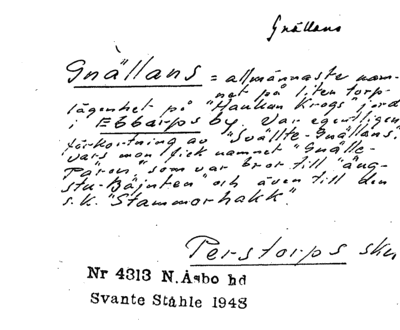 Gnällans
Gnällans = allmännaste nam-
net på liten torp-
lägenhet på "Haukan Krogs" jord
i Ebbarps by. Var egentligen
förkortning av "Svällte-Gnällans",
vars man fick namnet "Gnälle-
Paron", som var bror till "äng-
stu-Bäjnten" och även till den
s.k. "Stammorhakk".
Perstorps skn
Nr 4313 N.Åsbo hd
Svante Ståhle 1948